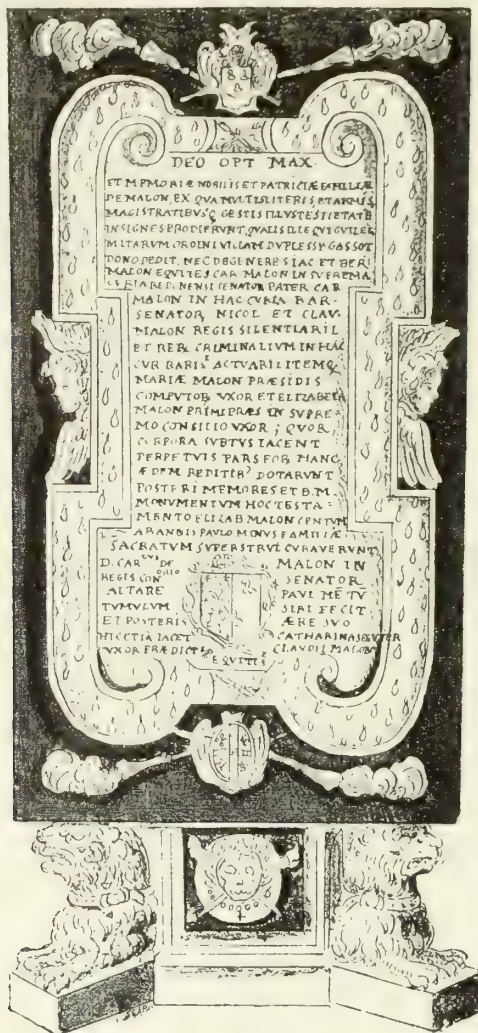 DEO OPT MAX.
ET MEMORIÆ NOBILIS ET PATRICIÆ FAMILIÆ
DE MALON, EX QUA MULTIS LITERIS, ET ARMIS,
MAGISTRATIBUSQ GESTIS ILLUSTES
INSIGNES PRODIERUNT, QUALIS ILLE QUI GUILEL
MITARUM ORDINI VILLAM DUPLESSY GASSOT
DONO DEDIT, NEC DEGENERES IAC ET BER
MALON EQUITES CAR MALON IN SUPREMA
SENATOR PATER CAR
MALON IN HAC CURIA BAR-
SENATOR, NICOL ET CLAU-
MALON REGIS SILENTIARII
ET RER CRIMINALIUM IN HAC
CUR ACTUARII ITEMQ
MARIÆ MALON PRÆSIDIS
COMPUTOR UXOR ET ELIZABETA
MALON PRIMI PRÆS IN SUPRE-
MO CONSILIO UXOR; QUOR
CORPORA SUBTUS IACENT
PERPETUIS PARS FOR HANC
ÆDEM REDITIB DOTARUNT
POSTERI MEMORES ET B.M.
MONUMENTUM HOC TESTA-
MENTO ELIZAB MALON CENTUM
PAULO MONUS FAMILIÆ
SACRATUM SUPERSTRUI CURAVERUNT
D. CAR DE MALON IN
REGIS CON SENATOR
ALTARE PAUL
TUMULUM SIBI FECIT
ET POSTERIS ÆRE SUO
HIC ETIĀ IACET CATHARINA
UXOR PRÆDICTI CLAUDII MALON
EQUITI